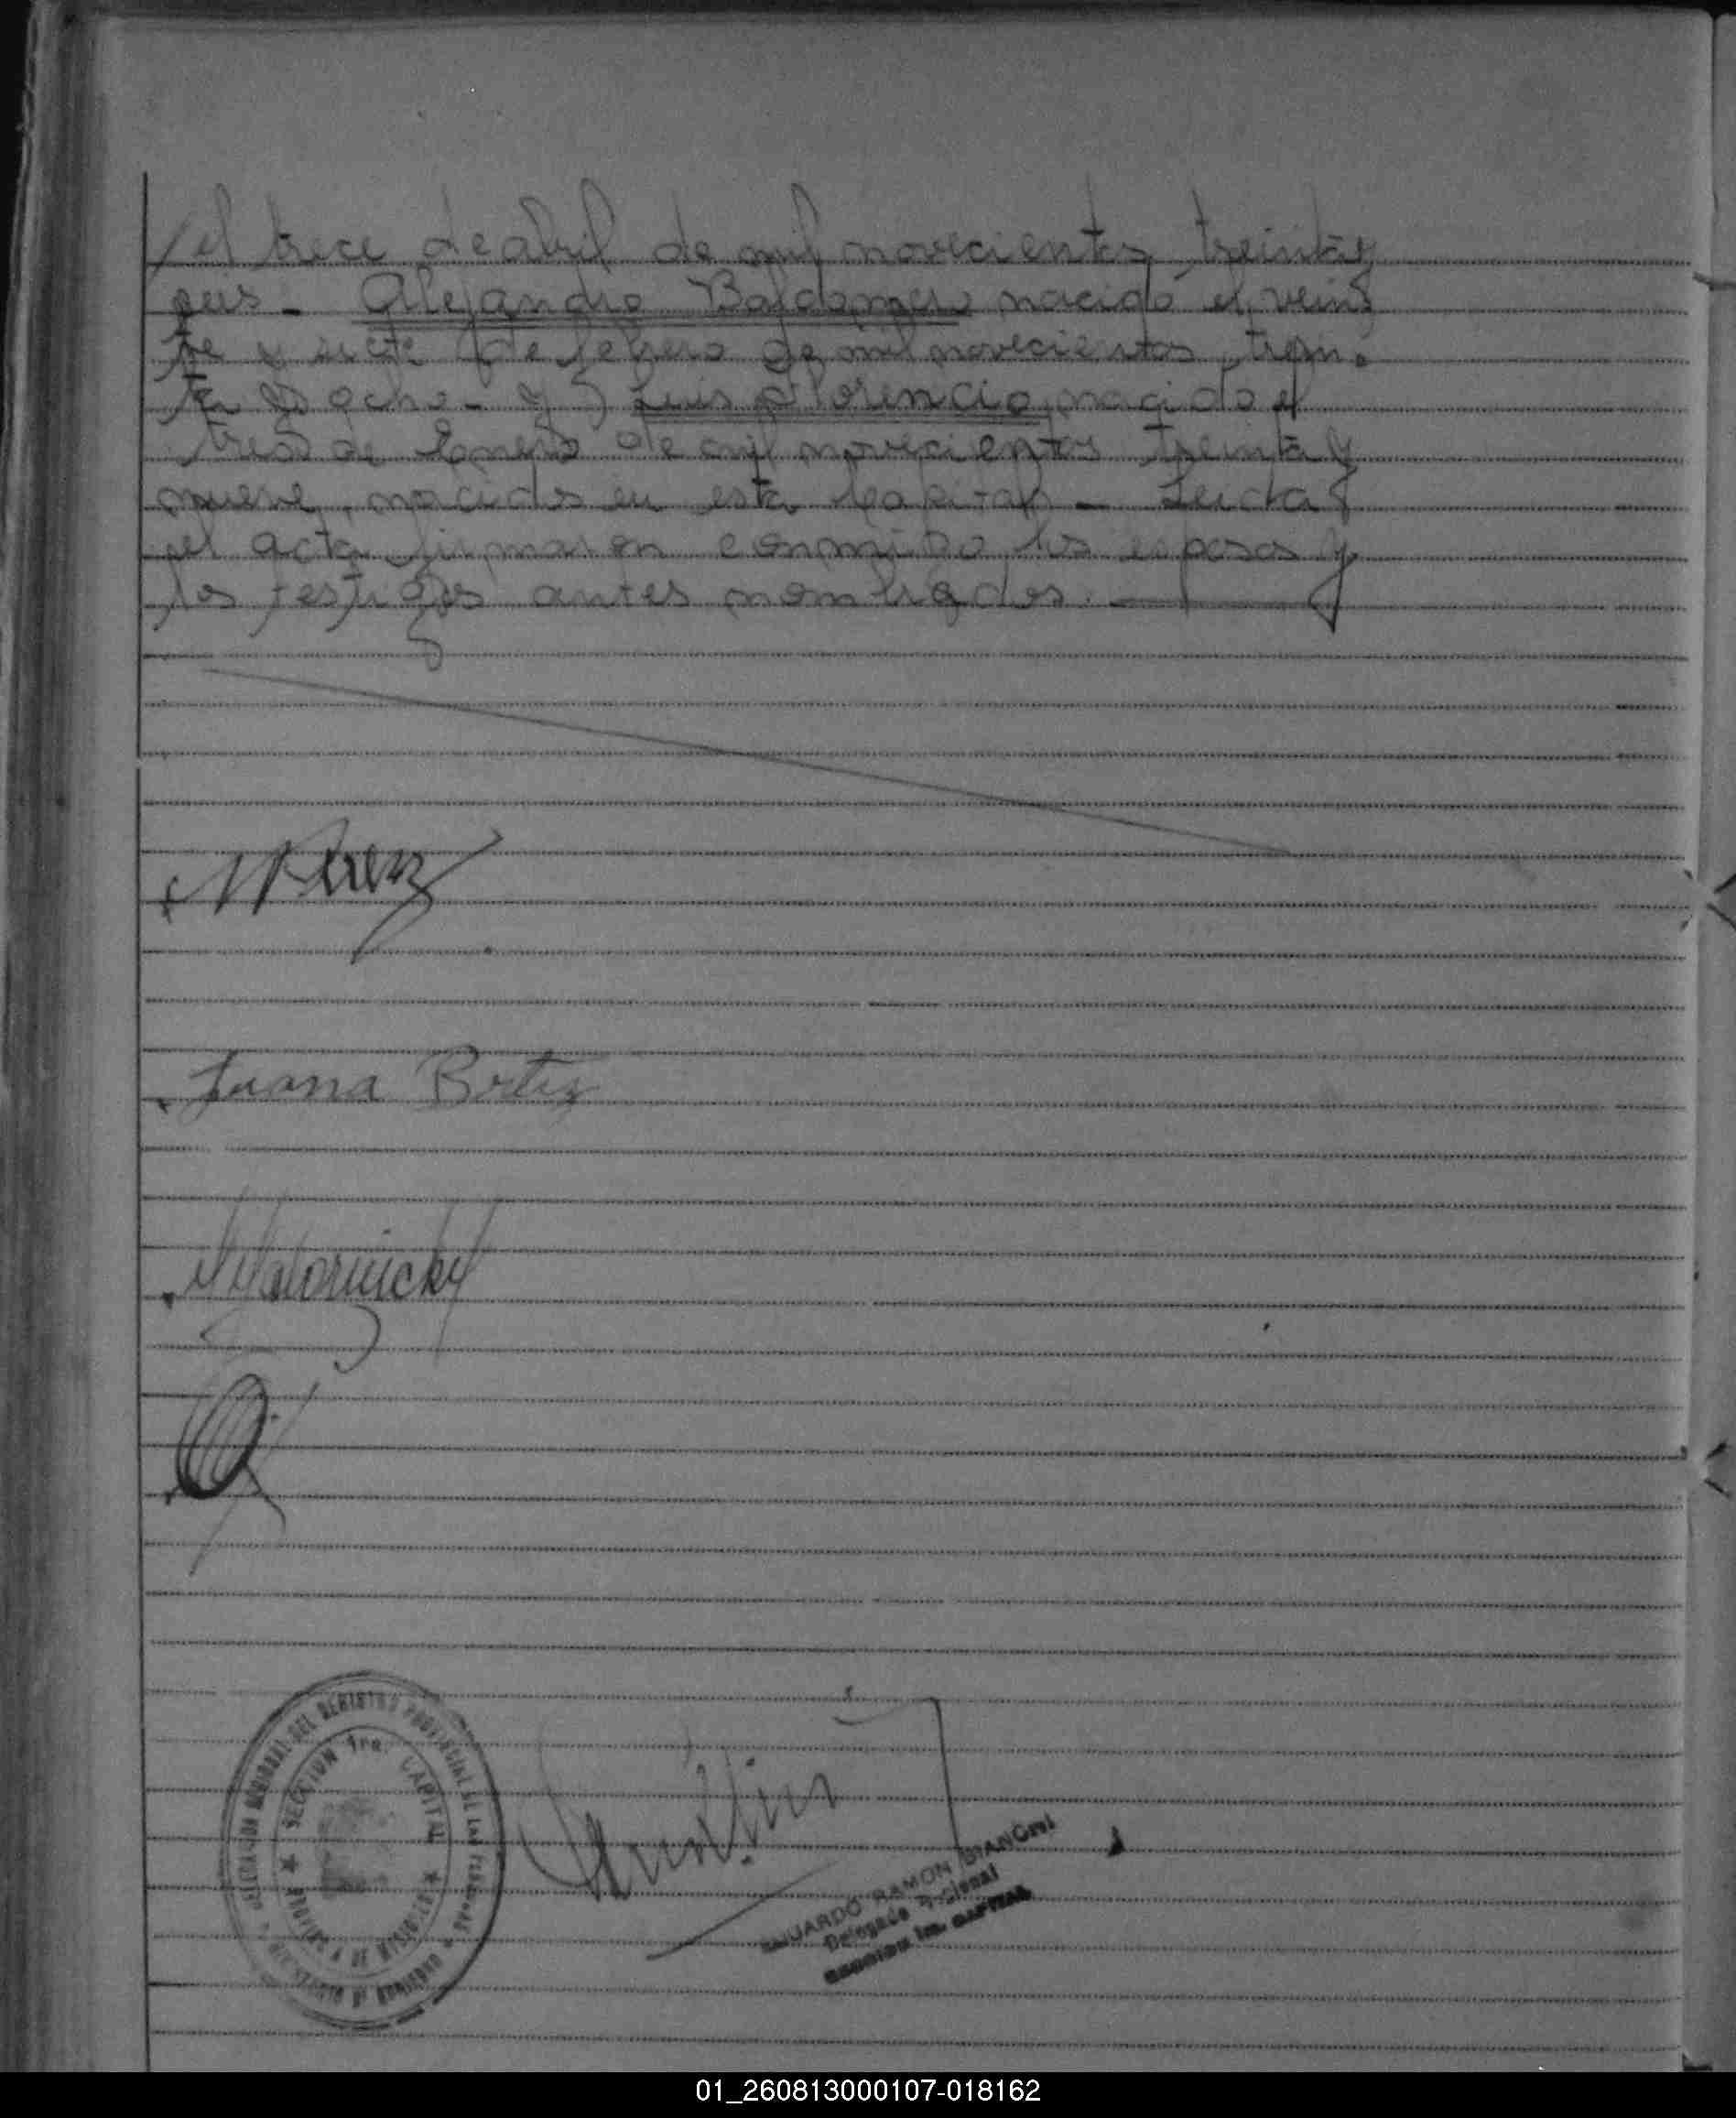 el trece de abril de mil novecientos treinta y
seis - Alejandro Baldomero nacido el vein
te y siete de febrero de mil novecientos trein
ta y ocho - y 5 Luis Florencio nacido el
tres de Enero de mil novecientos treinta y
nueve, nacidos en esta Capital - Leida
el acta firmaron conmigo los esposos y
los testigos antes nombrados. -
Juana
SECCION 1ra. CAPITAL
PROVINCIA DE MISIONES
DELEGACION REGIONAL DEL REGISTRO PROVINCIAL DE LAS PERSONAS
MINISTERIO DE GOBIERNO
EDUARDO RAMON BIANCHI
Delegado Regional
SECCION 1ra. CAPITAL
01_260813000107-018162